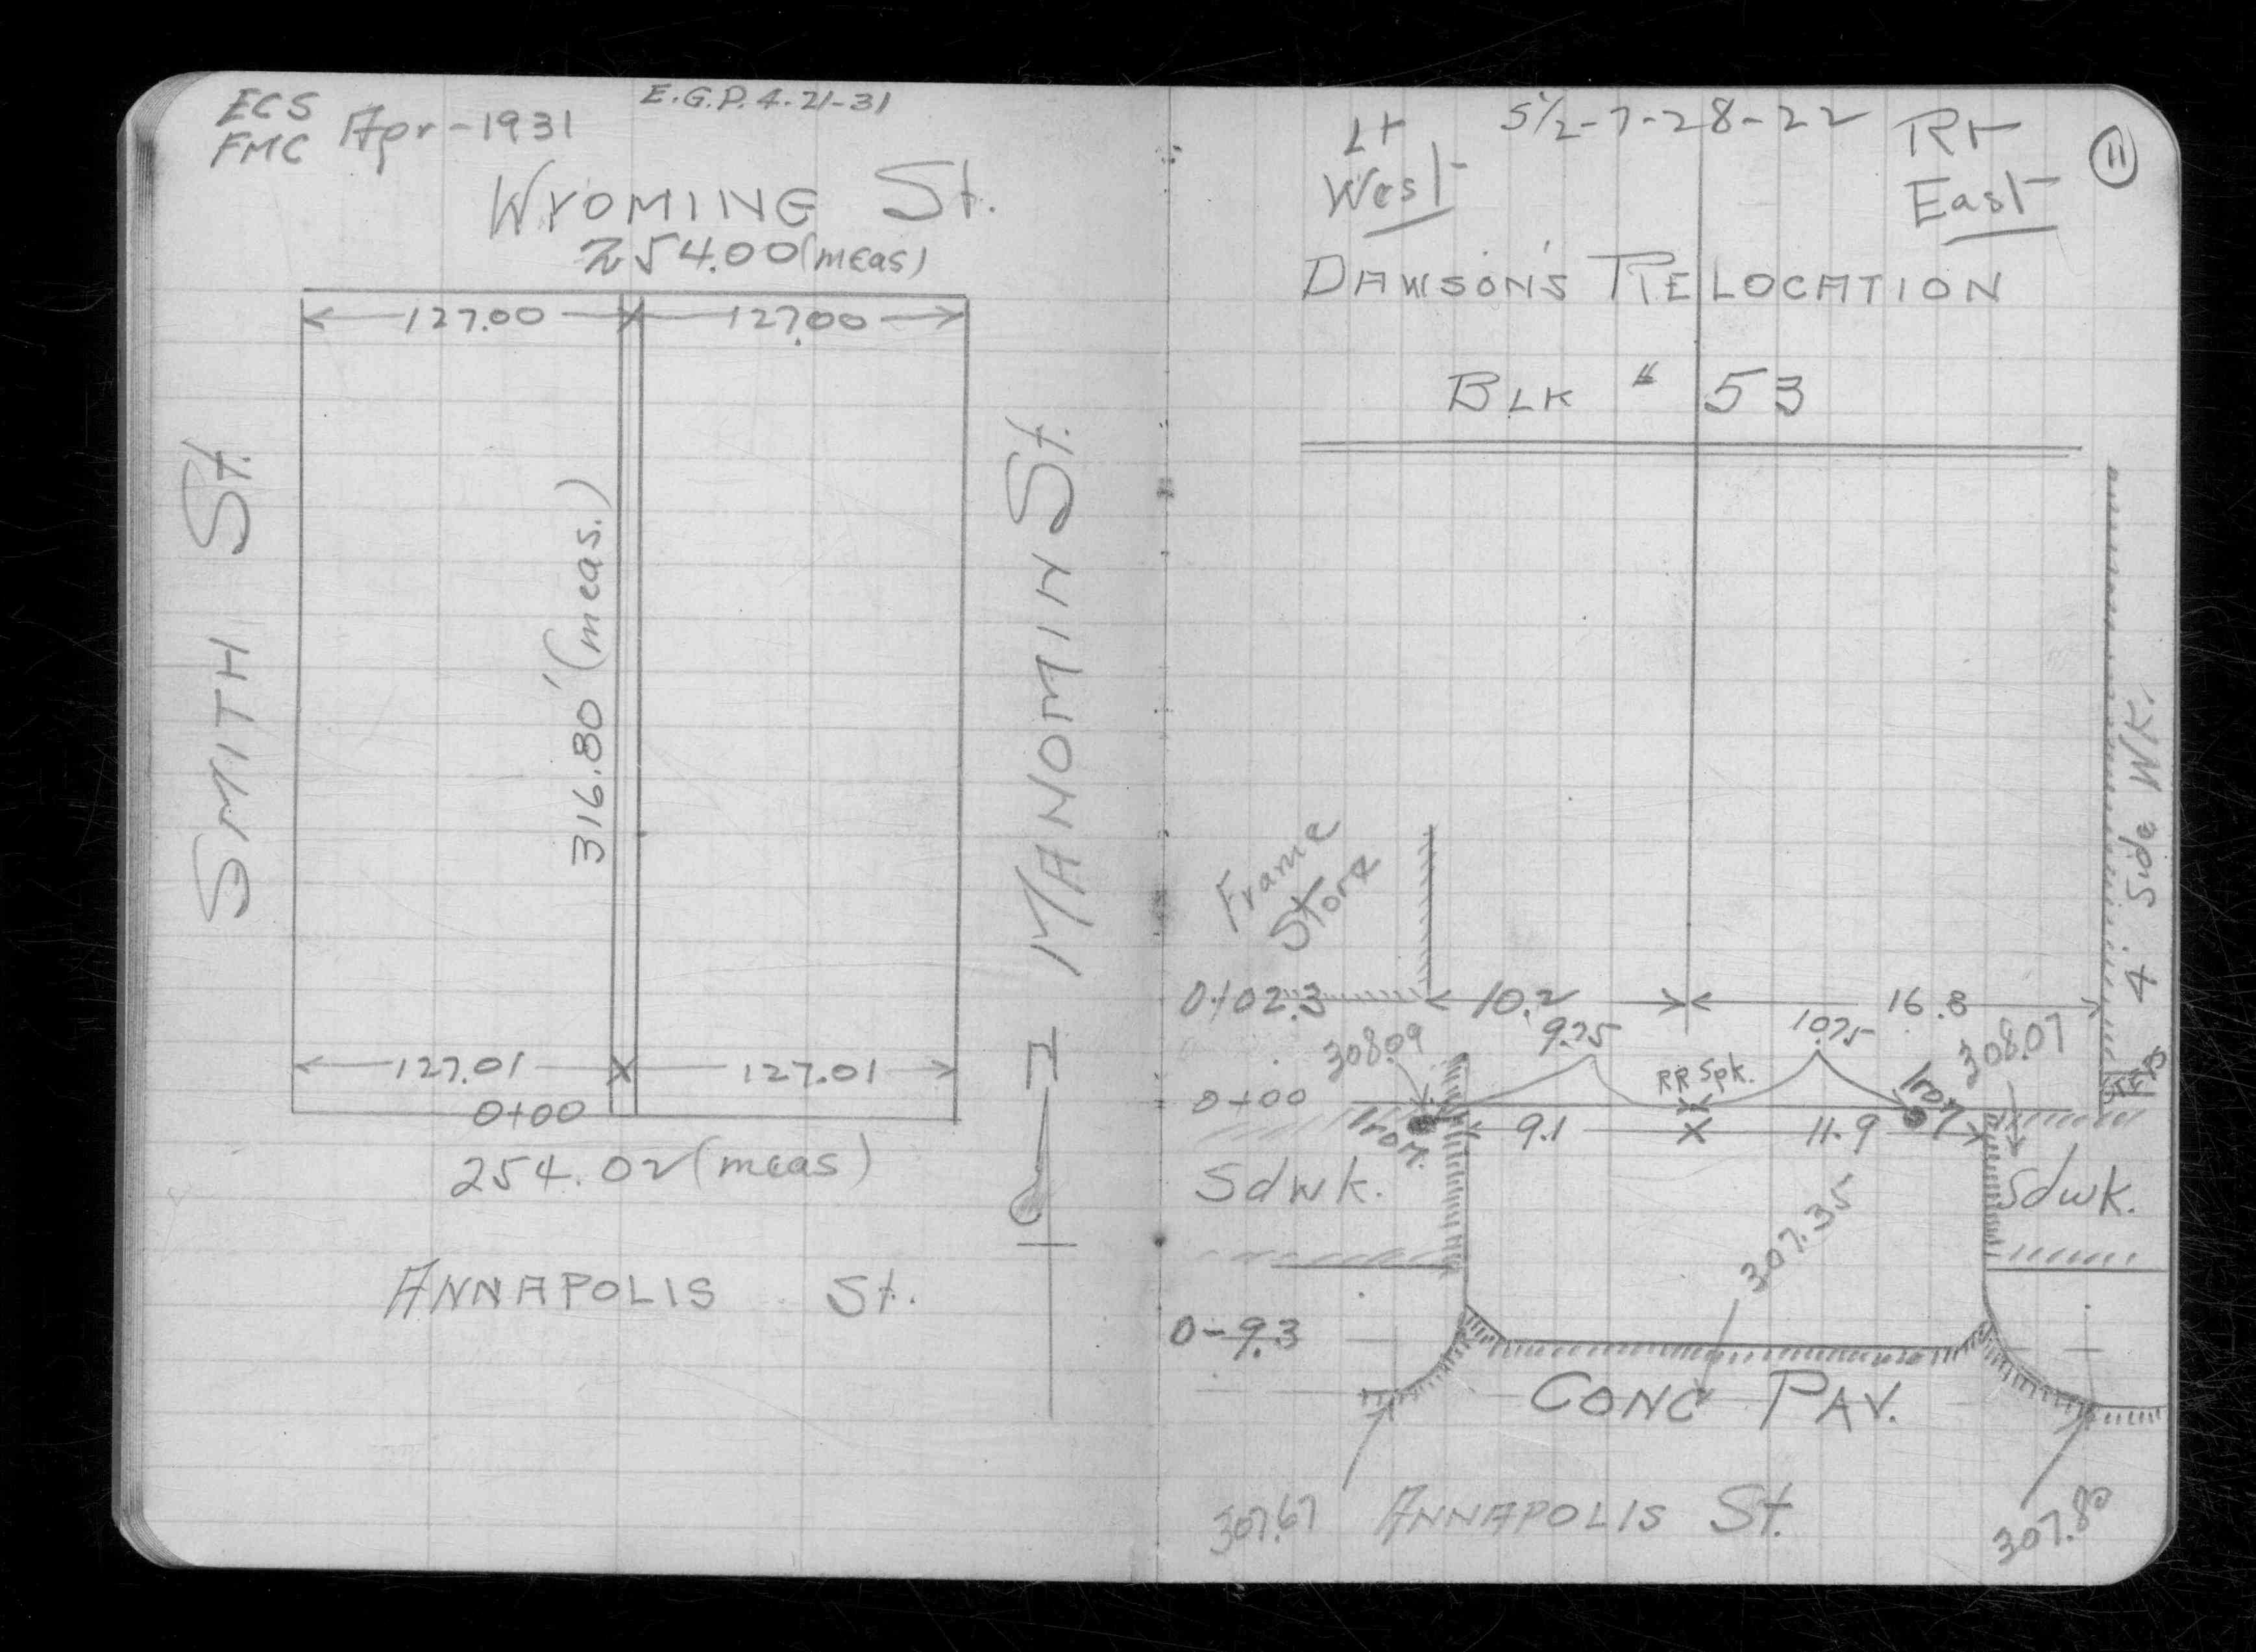 ECS
FMC Apr-1931
E.G.P. 4-21-31
WYOMING St.
254.00 (meas)
127.00 127.00
SMITH St.
316.80' (meas.)
MANOMIN St.
127.01 127.01
0+00
254.02 (meas)
ANNAPOLIS St.
Lt S½-7-28-22 Rt
West East
11
DAWSON'S RELOCATION
BLK " 53
4 Side Wk.
Frame
Store
0+02.3 10.2 16.8
308.09 9.75 10.75 308.07
RR Spk.
STEPS
0+00
Iron Iron
9.1 11.9
Sdwk. Sdwk.
307.35
0-9.3
CONC PAV.
307.67 ANNAPOLIS St. 307.80